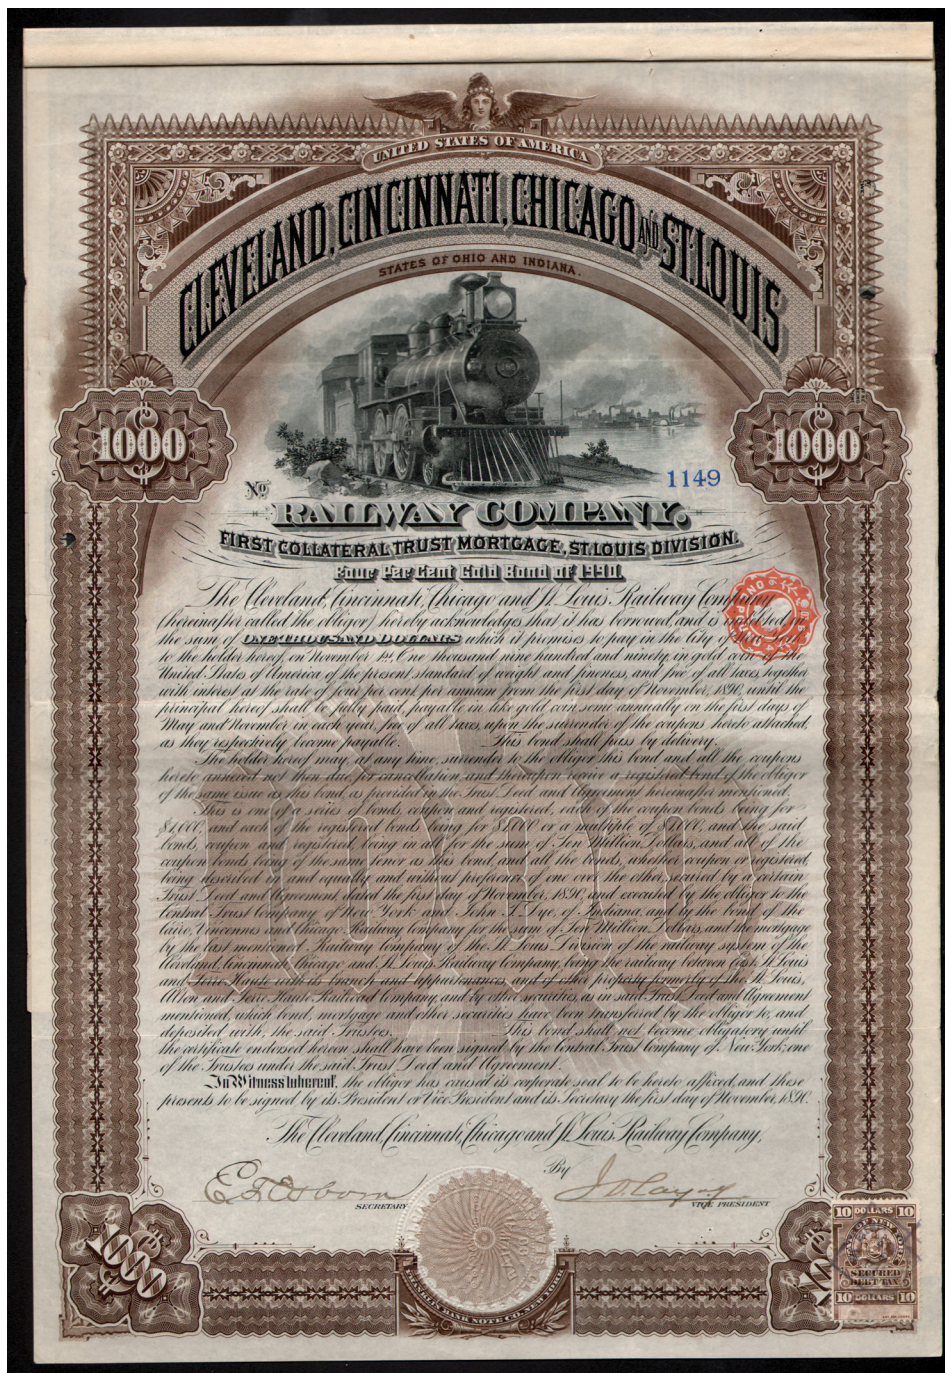 UNITED STATES OF AMERICA
CLEVELAND, CINCINNATI, CHICAGO AND ST. LOUIS
STATES OF OHIO AND INDIANA.
1000
1000
No. 1149
RAILWAY COMPANY.
FIRST COLLATERAL TRUST MORTGAGE, ST. LOUIS DIVISION.
Four Per Cent Gold Bond of 1990.
The Cleveland, Cincinnati, Chicago and St. Louis Railway Company
(hereinafter called the obligor) hereby acknowledges that it has borrowed, and is indebted in
the sum of ONE THOUSAND DOLLARS which it promises to pay in the City of New York
to the holder hereof, on November 1st, One thousand nine hundred and ninety, in gold coin of the
United States of America of the present standard of weight and fineness, and free of all taxes, together
with interest at the rate of four per cent. per annum from the first day of November, 1890, until the
principal hereof shall be fully paid, payable in like gold coin semi annually on the first days of
May and November in each year, free of all taxes, upon the surrender of the coupons hereto attached,
as they respectively become payable. This bond shall pass by delivery.
The holder hereof may, at any time, surrender to the obligor this bond and all the coupons
hereto annexed not then due, for cancellation and thereupon receive a registered bond of the obligor
of the same issue as this bond, as provided in the Trust Deed and Agreement hereinafter mentioned.
This is one of a series of bonds, coupon and registered, each of the coupon bonds being for
$1,000, and each of the registered bonds being for $1,000 or a multiple of $1,000, and the said
bonds, coupon and registered, being in all for the sum of Ten Million Dollars, and all of the
coupon bonds being of the same tenor as this bond, and all the bonds, whether coupon or registered,
being described in and equally and without preference of one over the other, secured by a certain
Trust Deed and Agreement, dated the first day of November, 1890, and executed by the obligor to the
Central Trust Company of New York and John T. Dye, of Indiana, and by the bond of the
Cairo, Vincennes and Chicago Railway Company for the sum of Ten Million Dollars, and the mortgage
by the last mentioned Railway Company of the St. Louis Division of the railway system of the
Cleveland, Cincinnati, Chicago and St. Louis Railway Company, being the railway between East St. Louis
and Terre Haute with its branch and appurtenances, and of other property formerly of the St. Louis,
Alton and Terre Haute Railroad Company, and by other securities, as in said Trust Deed and Agreement
mentioned, which bond, mortgage and other securities have been transferred by the obligor to, and
deposited with, the said Trustees. This bond shall not become obligatory until
the certificate endorsed hereon shall have been signed by the Central Trust Company of New York, one
of the Trustees under the said Trust Deed and Agreement.
In Witness whereof, the obligor has caused its corporate seal to be hereto affixed, and these
presents to be signed by its President or Vice President and its Secretary the first day of November, 1890.
The Cleveland, Cincinnati, Chicago and St. Louis Railway Company,
By
E F Osborn
SECRETARY
VICE PRESIDENT
1000
10 DOLLARS 10
SECURED
DEBT TAX
10 DOLLARS 10
BANK NOTE CO. NEW YORK